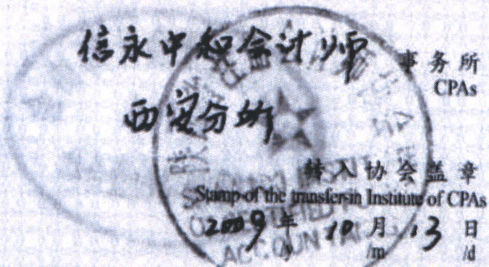 信永中和会计师 事务所
CPAs
西安分所
转入协会盖章
Stamp of the transfer-in Institute of CPAs
2009年 10月 13日
/y /m /d